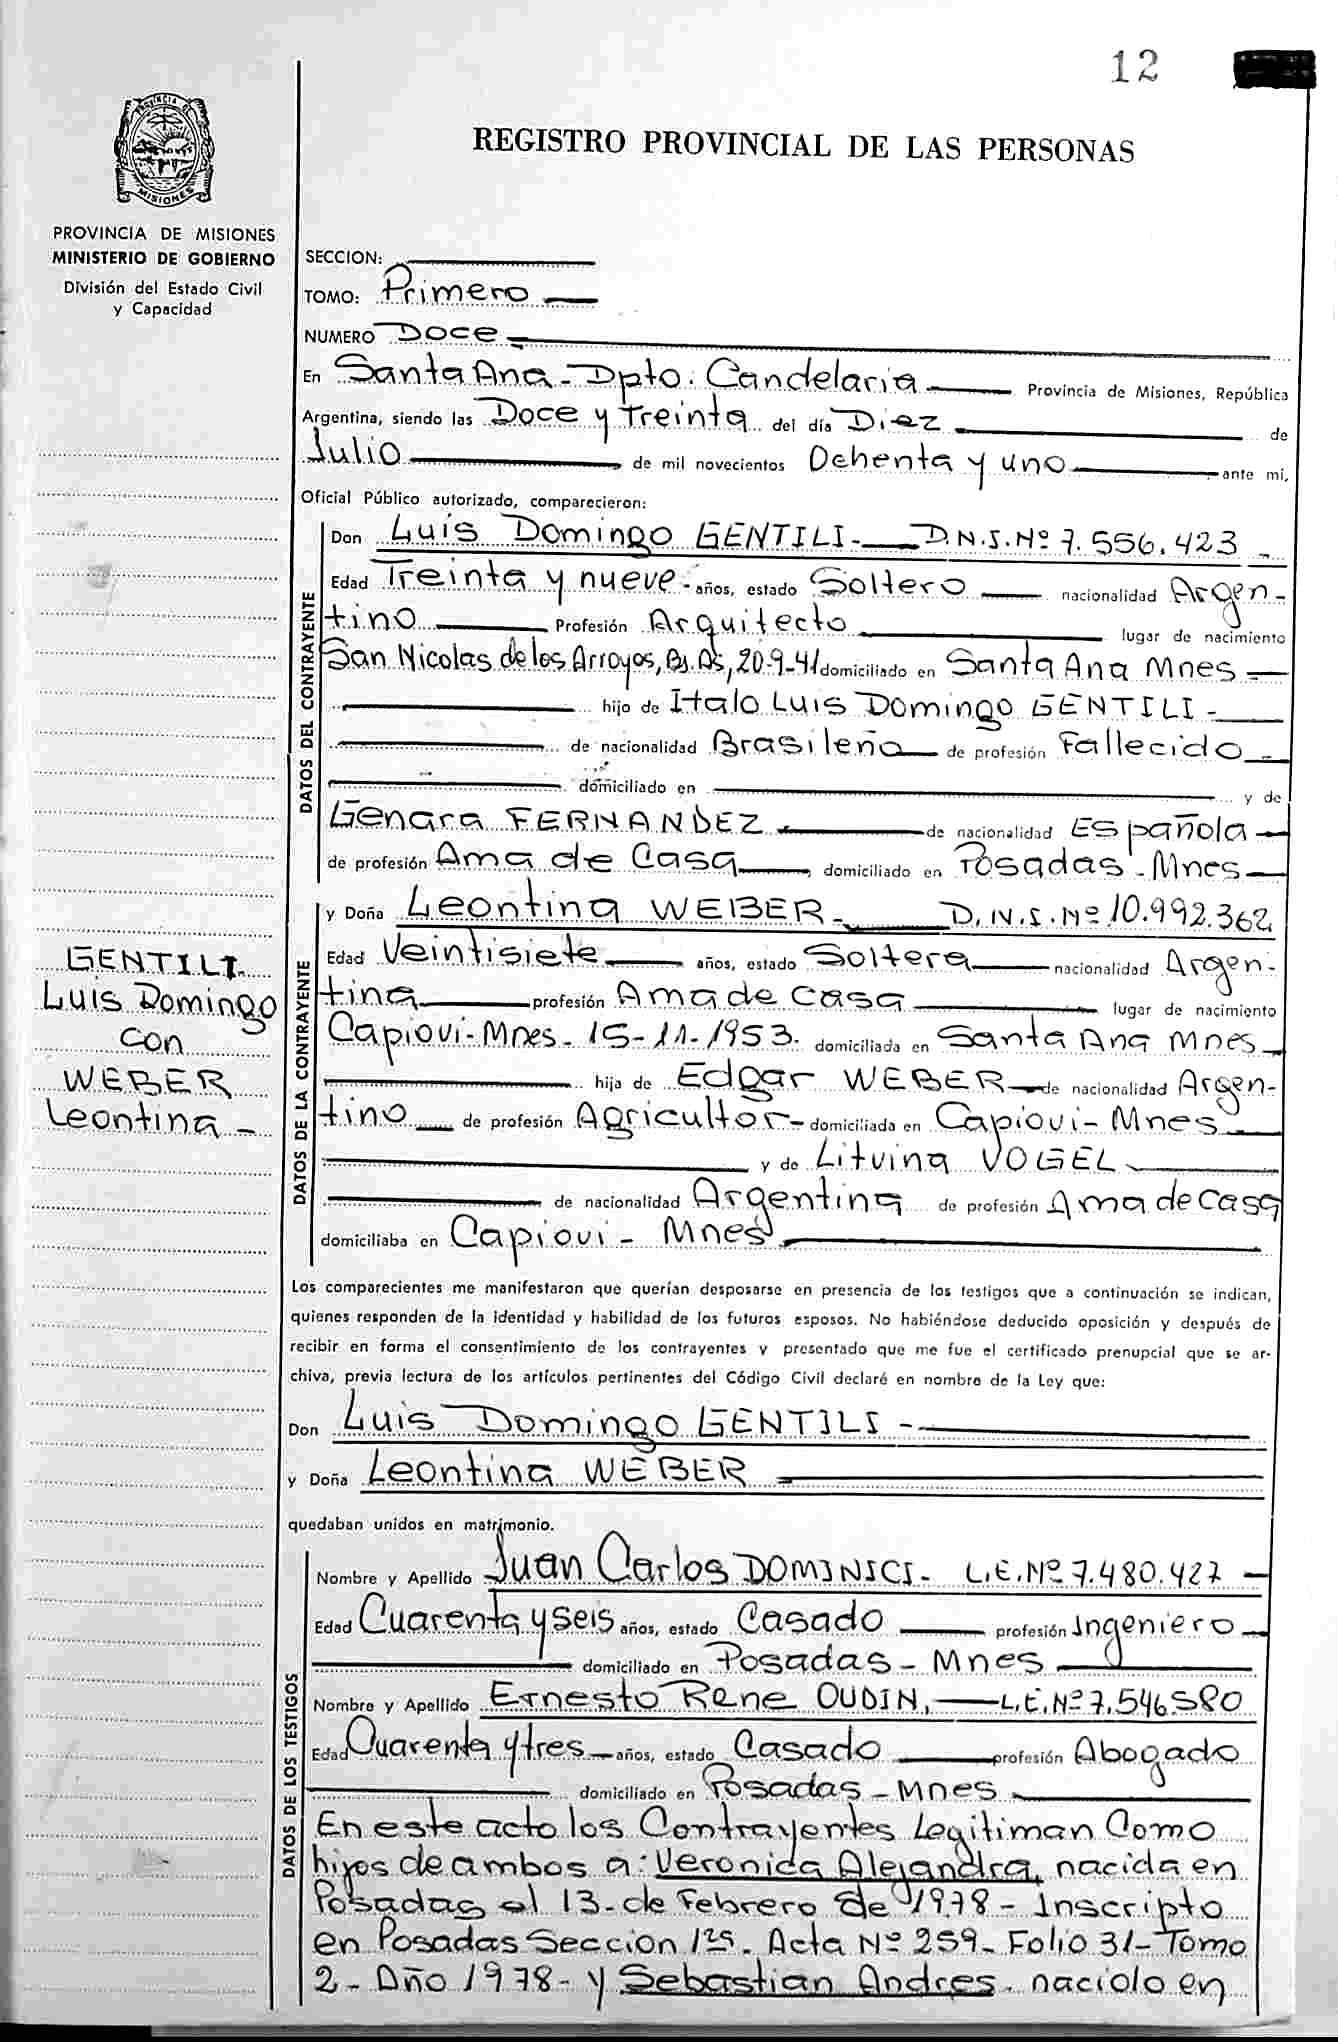 12
PROVINCIA DE
MISIONES
REGISTRO PROVINCIAL DE LAS PERSONAS
PROVINCIA DE MISIONES
MINISTERIO DE GOBIERNO
División del Estado Civil
y Capacidad
SECCION:
TOMO: Primero
NUMERO Doce
En Santa Ana - Dpto. Candelaria Provincia de Misiones, República
Argentina, siendo las Doce y Treinta del día Diez de
Julio de mil novecientos Ochenta y uno ante mi,
Oficial Público autorizado, comparecieron:
DATOS DEL CONTRAYENTE
Don Luis Domingo GENTILI - D.N.I. Nº 7.556.423
Edad Treinta y nueve - años, estado Soltero nacionalidad Argen-
tino Profesión Arquitecto lugar de nacimiento
San Nicolas de los Arroyos, Bs. As, 20-9-41 domiciliado en Santa Ana Mnes
hijo de Italo Luis Domingo GENTILI -
de nacionalidad Brasileña de profesión Fallecido -
domiciliado en y de
Genara FERNANDEZ de nacionalidad Española
de profesión Ama de Casa domiciliado en Posadas - Mnes
DATOS DE LA CONTRAYENTE
y Doña Leontina WEBER - D.N.I. Nº 10.992.362
Edad Veintisiete años, estado Soltera nacionalidad Argen-
tina profesión Ama de casa lugar de nacimiento
Capiovi - Mnes - 15-11-1953. domiciliada en Santa Ana Mnes
hija de Edgar WEBER de nacionalidad Argen-
tino de profesión Agricultor - domiciliada en Capiovi - Mnes
y de Lituina VOGEL
de nacionalidad Argentina de profesión Ama de casa
domiciliaba en Capiovi - Mnes
GENTILI
Luis Domingo
con
WEBER
Leontina -
Los comparecientes me manifestaron que querían desposarse en presencia de los testigos que a continuación se indican,
quienes responden de la identidad y habilidad de los futuros esposos. No habiéndose deducido oposición y después de
recibir en forma el consentimiento de los contrayentes y presentado que me fue el certificado prenupcial que se ar-
chiva, previa lectura de los artículos pertinentes del Código Civil declaré en nombre de la Ley que:
Don Luis Domingo GENTILI -
y Doña Leontina WEBER
quedaban unidos en matrimonio.
DATOS DE LOS TESTIGOS
Nombre y Apellido Juan Carlos DOMINICI - L.E. Nº 7.480.427
Edad Cuarenta y seis años, estado Casado profesión Ingeniero
domiciliado en Posadas - Mnes
Nombre y Apellido Ernesto Rene OUDIN, L.E. Nº 7.546580
Edad Cuarenta y tres años, estado Casado profesión Abogado
domiciliado en Posadas - Mnes
En este acto los Contrayentes Legitiman Como
hijos de ambos a: Veronica Alejandra, nacida en
Posadas el 13 - de Febrero de 1978 - Inscripto
en Posadas Seccion 1ra. Acta Nº 259 - Folio 31 - Tomo
2 - Año 1978 - y Sebastian Andres - nacido en